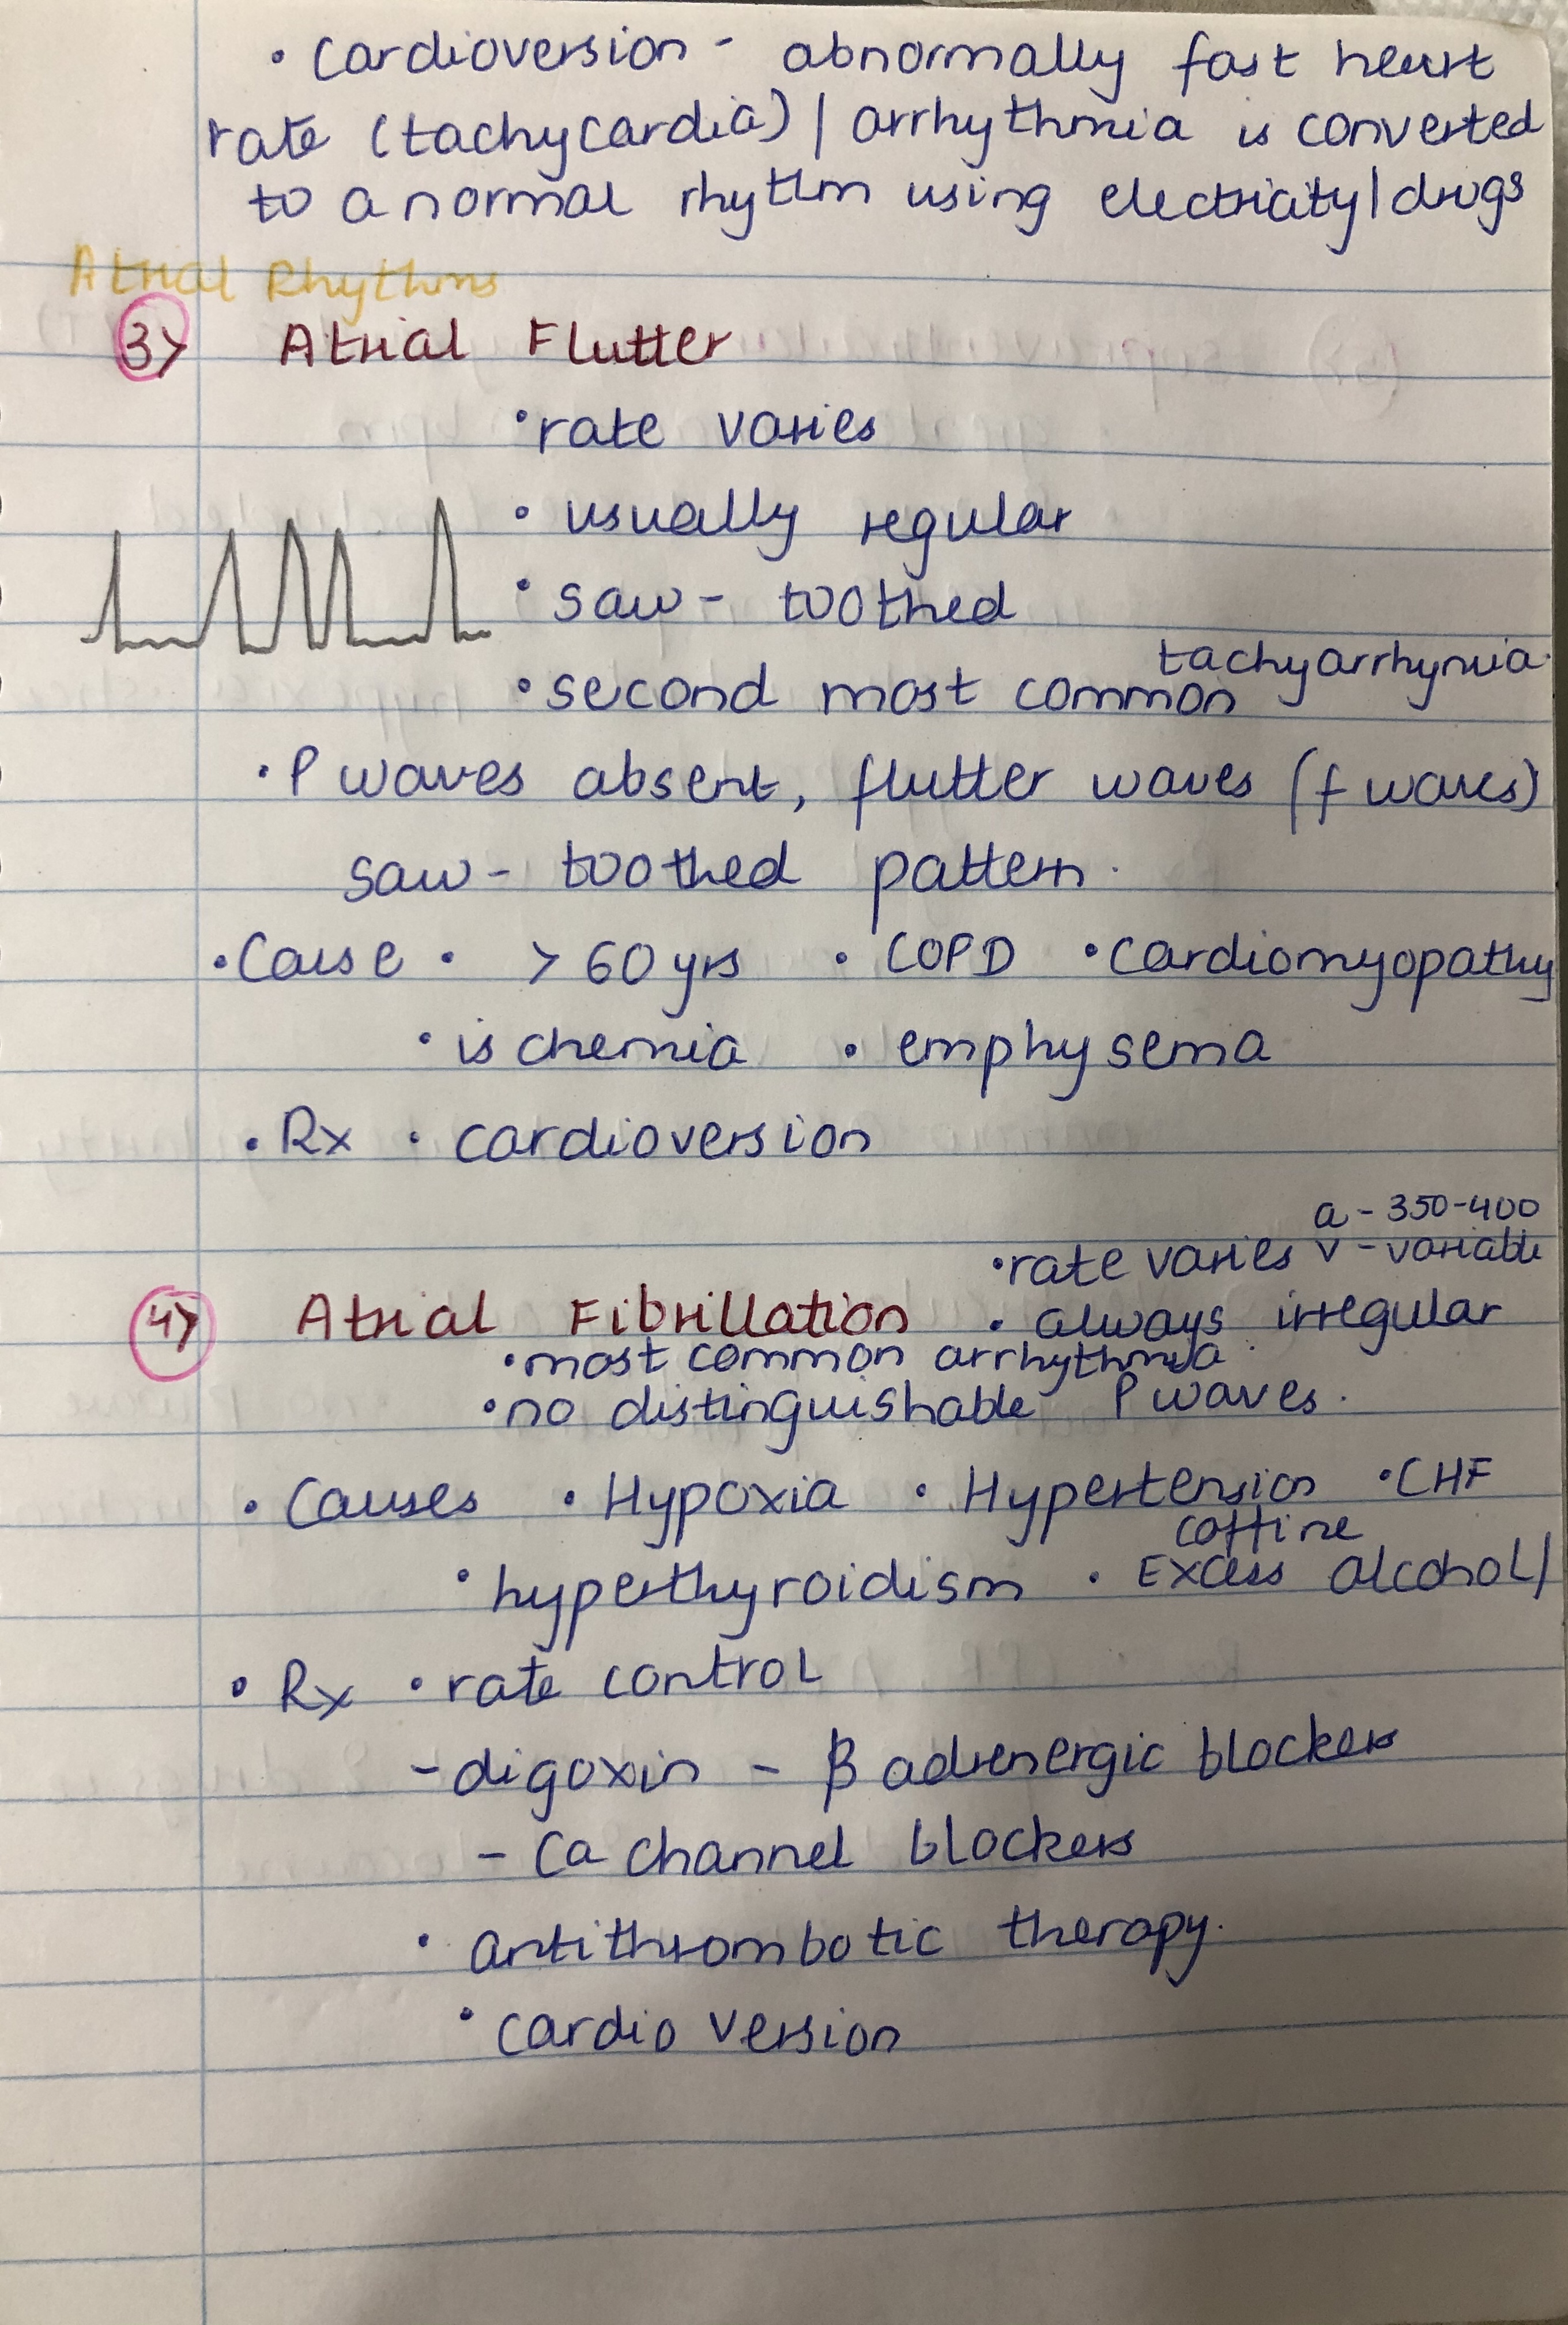 • Cardioversion - abnormally fast heart
rate (tachycardia) / arrhythmia is converted
to a normal rhythm using electricity / drugs
Atrial Rhythms
3> Atrial Flutter
• rate varies
• usually regular
• saw - toothed
• second most common tachyarrhymia.
• P waves absent, flutter waves (f waves)
saw - toothed pattern.
• Cause • > 60 yrs • COPD • cardiomyopathy
• ischemia • emphysema
• Rx • cardioversion
a - 350-400
• rate varies v - variable
4> Atrial Fibrillation • always irregular
• most common arrhythmia.
• no distinguishable P waves.
• Causes • Hypoxia • Hypertension • CHF
• hyperthyroidism • Excess alcohol /
coffine
• Rx • rate control
- digoxin - β adrenergic blockers
- Ca channel blockers
• antithrombotic therapy.
• cardio version